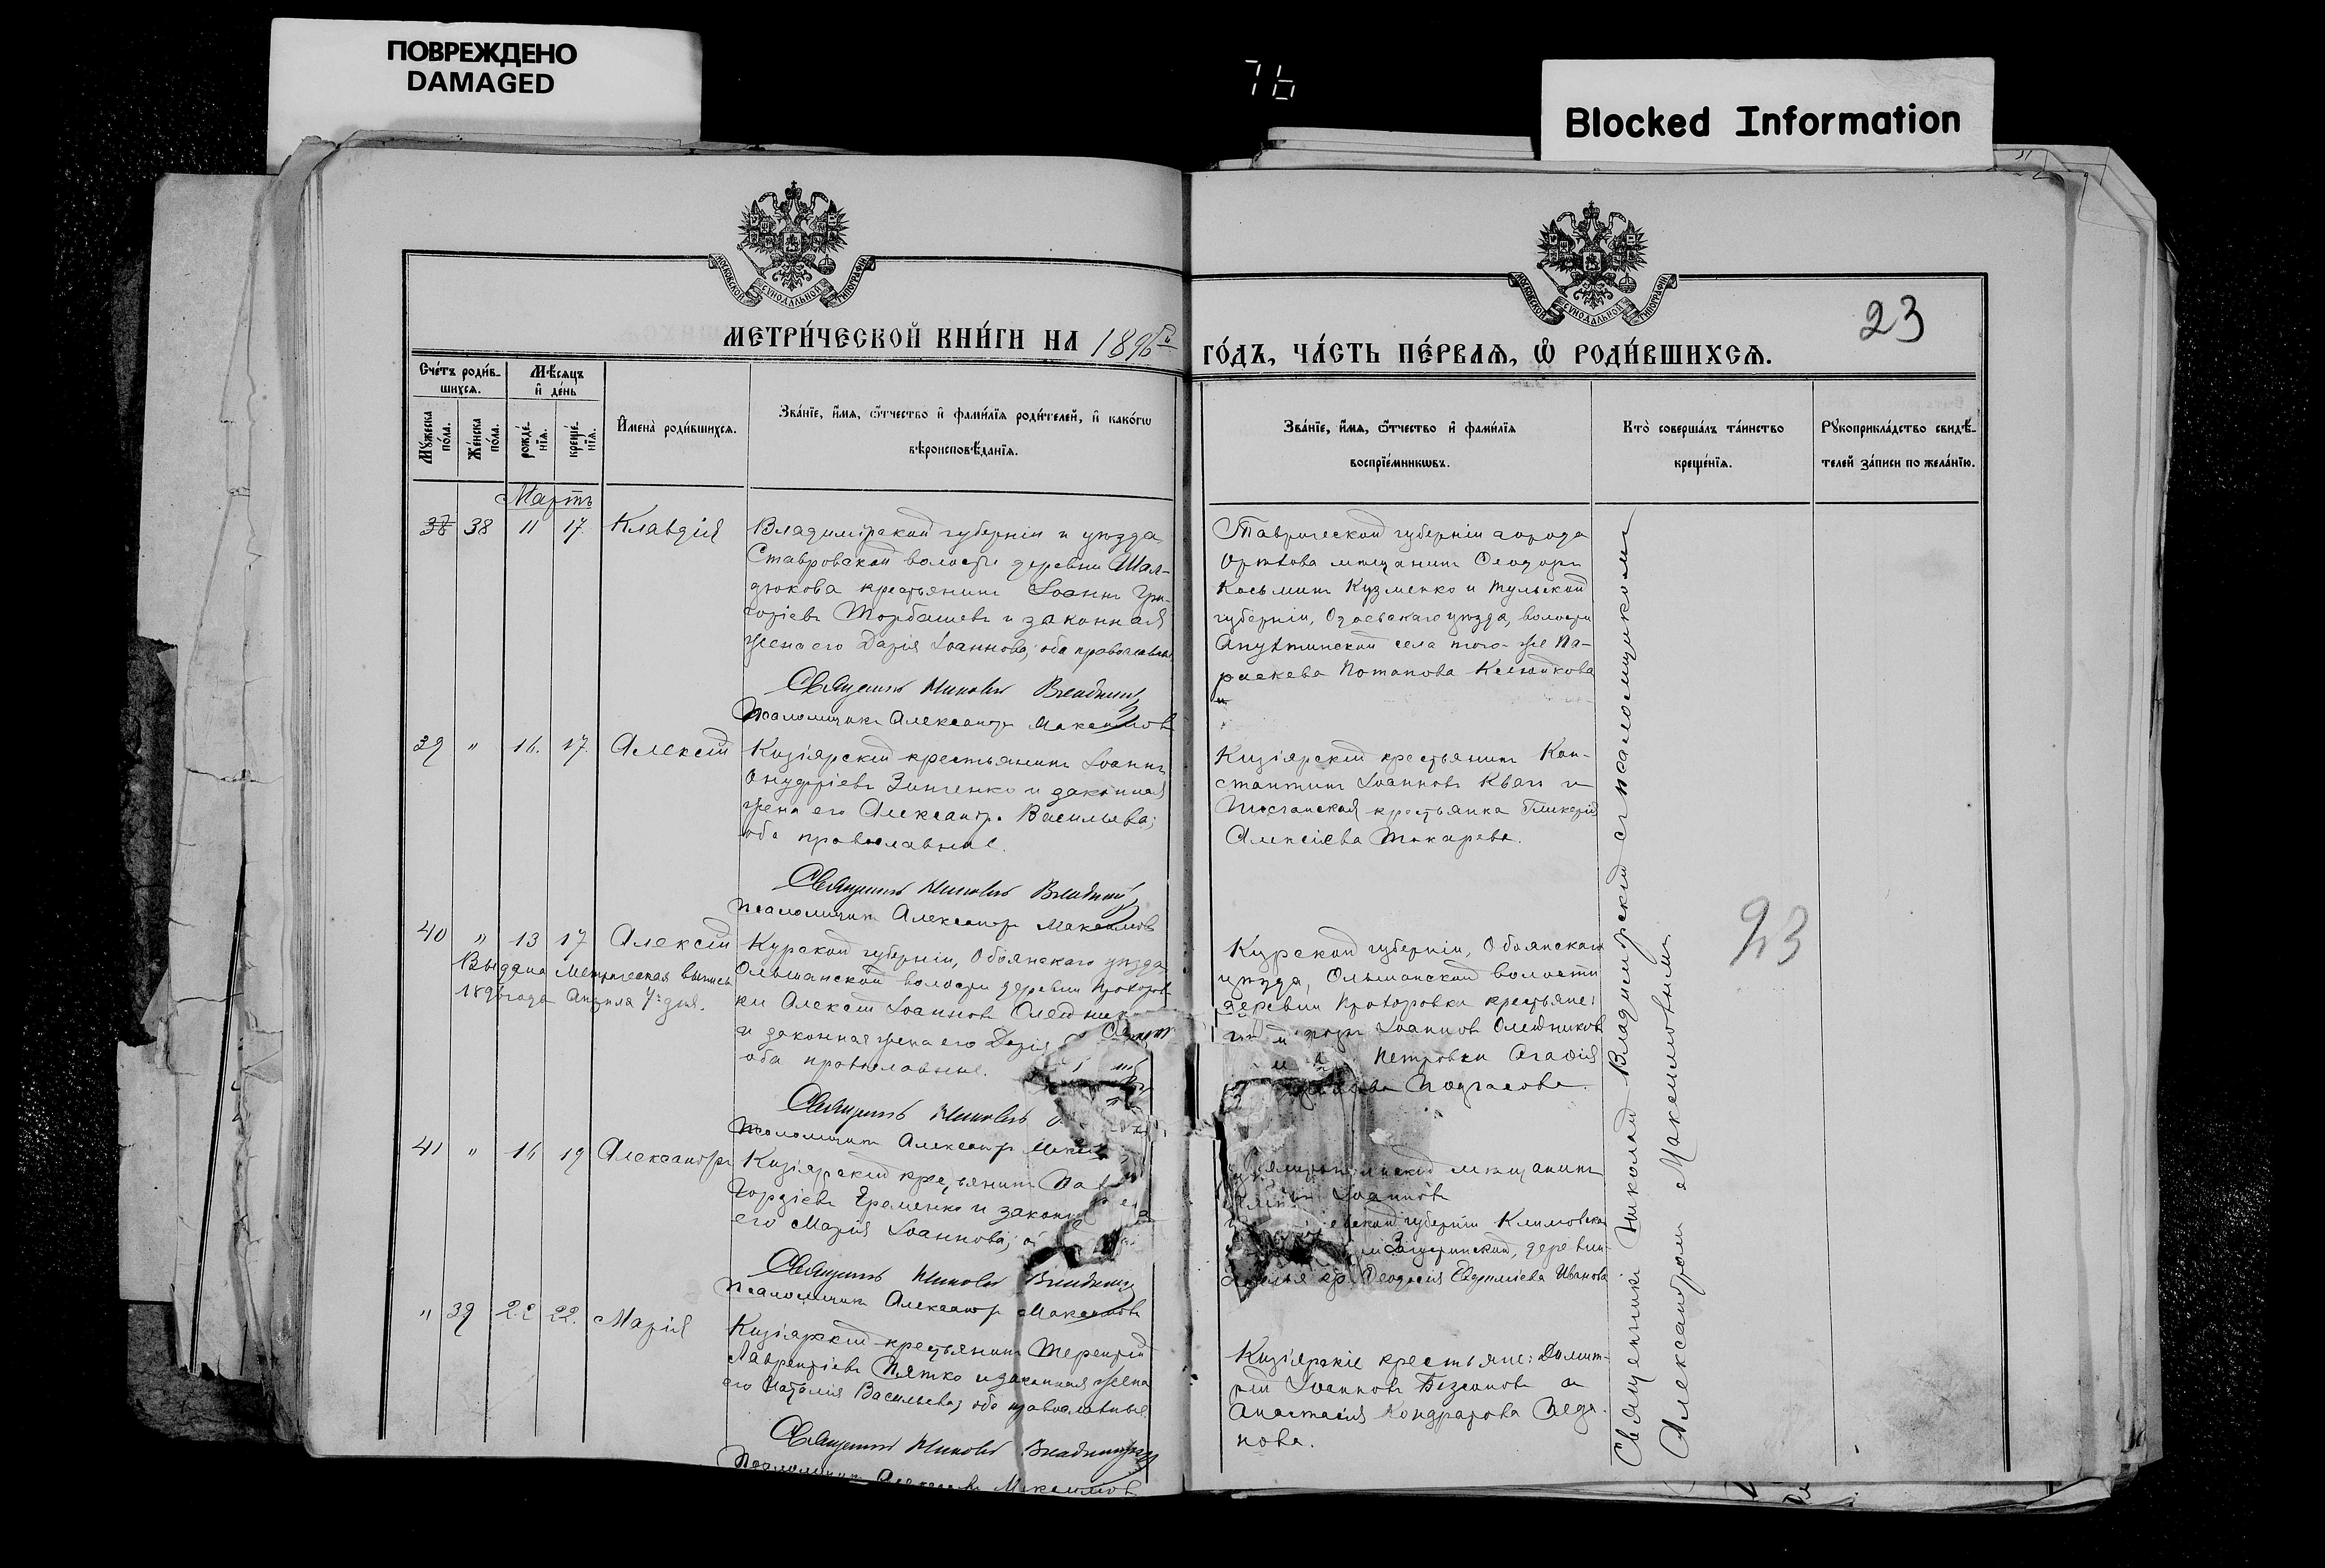 ПОВРЕЖДЕНО
DAMAGED
76
Blocked Information
МОСКОВСКОЙ СѴНОДАЛЬНОЙ ТИПОГРАФІИ
МОСКОВСКОЙ СѴНОДАЛЬНОЙ ТИПОГРАФІИ
23
МЕТРИ́ЧЕСКОЙ КНИ́ГИ НА 1896й
ГО́ДЪ, ЧА́СТЬ ПЕ́РВАѦ, Ѡ҆ РОДИ́ВШИХСѦ.
Сче́тъ роди́в-
шихсѧ.
Мꙋжеска по́ла.
Же́нска по́ла.
Мѣ́сѧцъ
и҆ де́нь
рожде́-
нїѧ.
креще́-
нїѧ.
И҆мена̀ роди́вшихсѧ.
Зва́нїе, и҆́мѧ, ѻ҆́тчество и҆ фами́лїѧ роди́телей, и҆ како́гѡ
вѣроисповѣ́данїѧ.
Зва́нїе, и҆́мѧ, ѻ҆́тчество и҆ фами́лїѧ
воспрїе́мникѡвъ.
Кто̀ соверша́лъ та́инство
креще́нїѧ.
Рꙋкоприкла́дство свидѣ́-
телей за́писи по жела́нїю.
Мартъ
38 11 17. Клавдія
Владимірской губерніи и уѣзда
Ставровской волости деревни Шал-
дюкова крестьянинъ Іоаннъ Гри-
горіевъ Торбашевъ и законная
жена его Дарія Іоаннова; оба православн
Священникъ Николай Владимир
Псаломщикъ Александръ Максимовъ
Таврической губерніи города
Орѣхова мѣщанинъ Ѳеодоръ
Косьминъ Кузменко и Тульской
губерніи, Одоевскаго уѣзда, волости
Апухтинской села того-же Па-
раскева Потапова
39 " 16. 17. Алексій
Кизіярскій крестьянинъ Іоаннъ
Онуфріевъ Зинченко и законная
жена его Александра Васильева;
оба православные.
Священникъ Николай Владимир
Псаломщикъ Александръ Максимовъ
Кизіярскій крестьянинъ Кон-
стантинъ Іоанновъ Квач и
Песчанская крестьянка Гликерія
Алексіева Токарева.
40 " 13 17 Алексій
Выдана Метрическая выпись
1896 года Апрѣля 7го дня.
Курской губерніи, Обоянскаго уѣзда
Ольшанской волости деревни Прохоров
ки Алексій Іоанновъ Олейник
и законная жена его Дарія
оба православные.
Священникъ Николай
Псаломщикъ Александръ
Курской губерніи, Обоянскаго
уѣзда, Ольшанской волости
деревни Прохоровки крестьяне:
Іоаннов Олейников
Петровки Агафія
93
41 " 16 19 Александръ
Кизіярскій крестьянинъ
Гордіевъ Еременко и законн
его Марія Іоаннова;
Священникъ Николай Владимир
Псаломщикъ Александръ Максимовъ
мѣщанинъ
Іоанновъ
губерніи Климовской
деревни
Ѳеодосія Иванова
" 39 22 22. Марія
Кизіярскій крестьянинъ Терентій
Лаврентіевъ Пятко и законная жена
его Наталія Васильева; оба православные.
Священникъ Николай Владимирскій
Псаломщикъ Александръ Максимовъ
Кизіярскіе крестьяне: Димит-
рій Іоанновъ и
Анастасія Кондратова
нова.
Священникъ Николай Владимирскій съ псаломщикомъ
Александромъ Максимовымъ